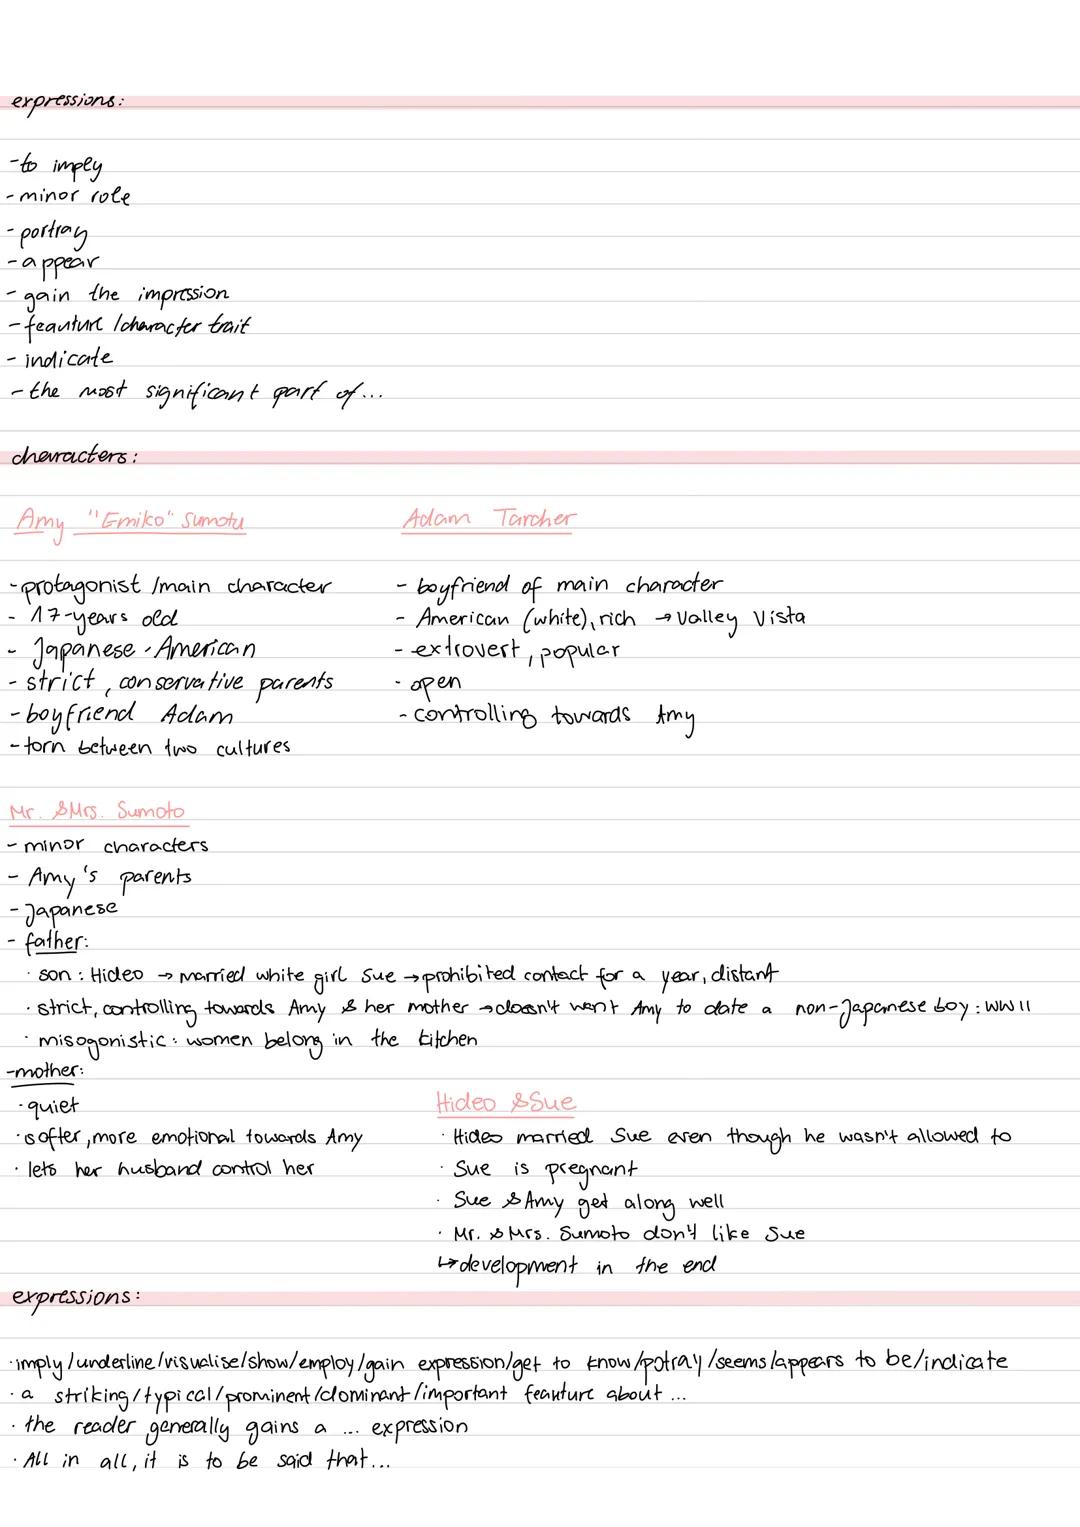 expressions:
-to imply
-minor role
-portray
-appear
-gain the impression
-feauture /character trait
-indicate
-the most significant part of...
characters:
Amy "Emiko" Sumotu
-protagonist /main character
- 17-years old
- Japanese-American
- strict, conservative parents
-boyfriend Adam
-torn between two cultures
Adam Tarcher
- boyfriend of main character
- American (white), rich → Valley Vista
- extrovert, popular
- open
- controlling towards Amy
Mr. & Mrs. Sumoto
- minor characters
- Amy's parents
- Japanese
- father:
· son: Hideo → married white girl Sue → prohibited contact for a year, distant
· strict, controlling towards Amy & her mother → doesn't want Amy to date a non-Japanese boy: WWII
· misogonistic: women belong in the kitchen
-mother:
·quiet
·softer, more emotional towards Amy
· lets her husband control her
Hideo & Sue
· Hideo married Sue even though he wasn't allowed to
· Sue is pregnant
· Sue & Amy get along well
· Mr. & Mrs. Sumoto don't like Sue
↳ development in the end
expressions:
·imply/underline/visualise/show/employ/gain expression/get to know/potray/seems/appears to be/indicate
· a striking/typical/prominent/dominant/important feauture about ...
· the reader generally gains a ... expression
· All in all, it is to be said that...